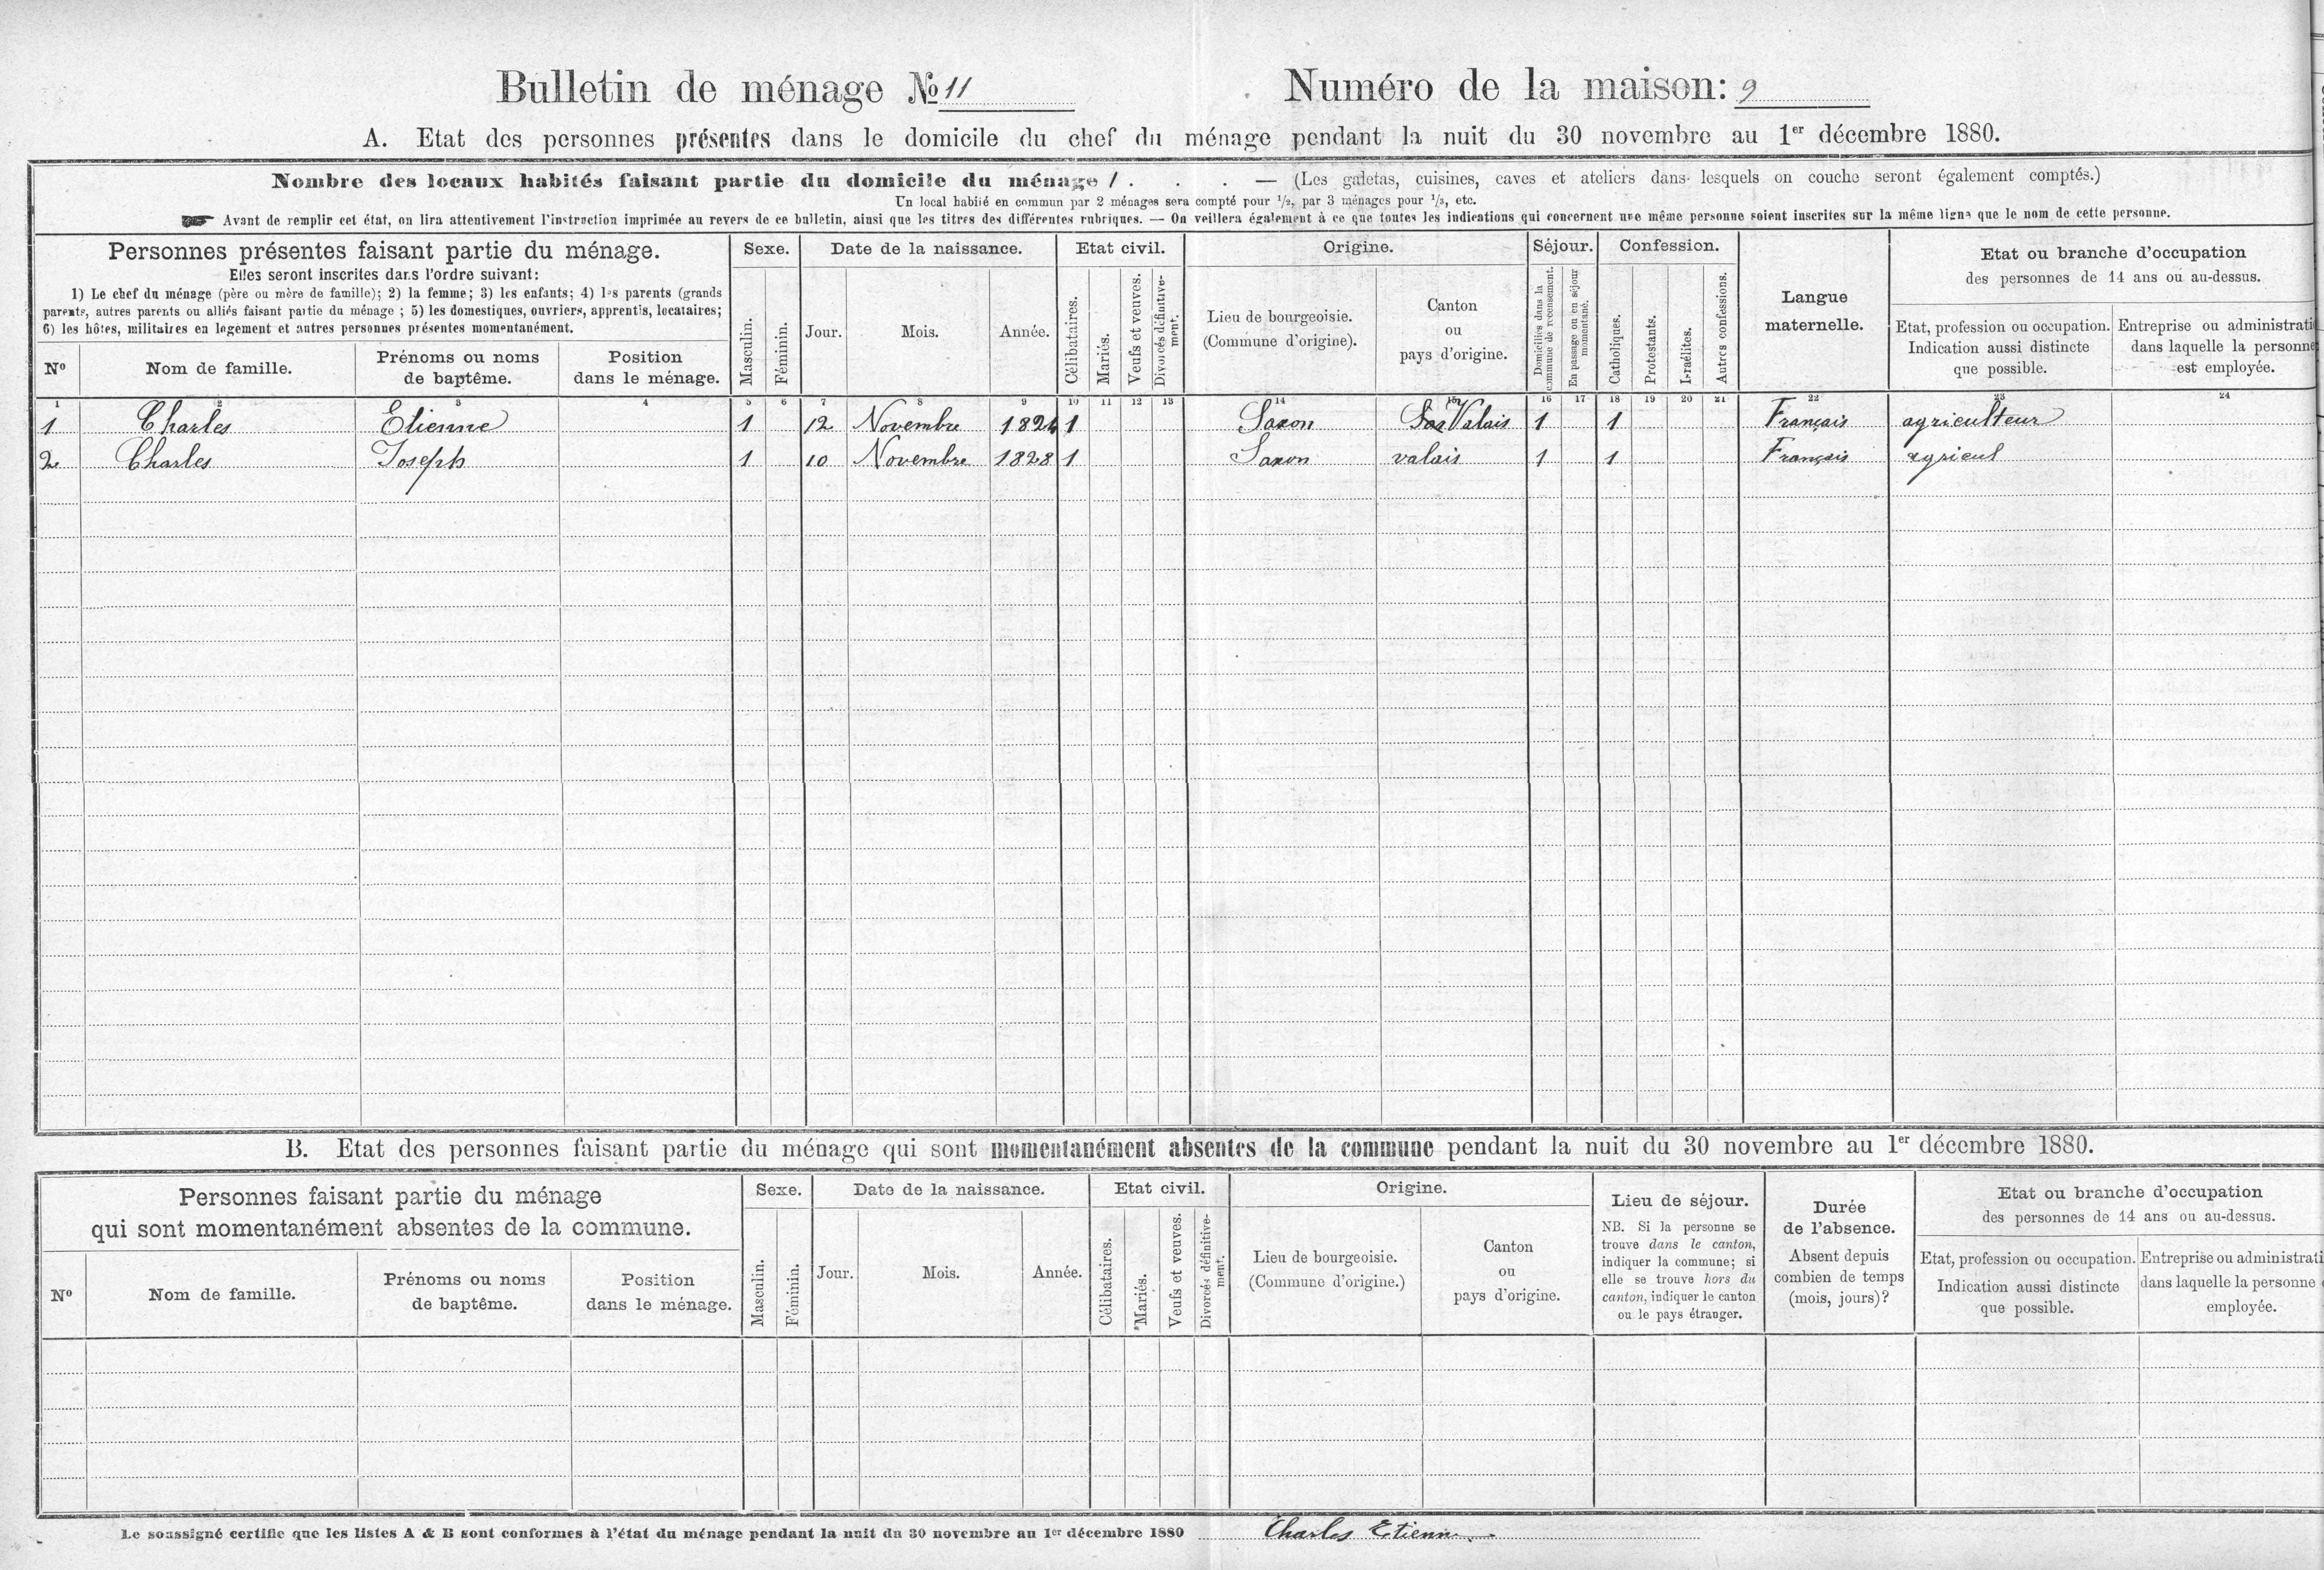 Bulletin de ménage No 11
Numéro de la maison: 9
A. Etat des personnes présentes dans le domicile du chef du ménage pendant la nuit du 30 novembre au 1er décembre 1880.
Nombre des locaux habités faisant partie du domicile du ménage 1 . . . — (Les galetas, cuisines, caves et ateliers dans lesquels on couche seront également comptés.)
Un local habité en commun par 2 ménages sera compté pour 1/2, par 3 ménages pour 1/3, etc.
Avant de remplir cet état, on lira attentivement l'instruction imprimée au revers de ce bulletin, ainsi que les titres des différentes rubriques. — On veillera également à ce que toutes les indications qui concernent une même personne soient inscrites sur la même ligne que le nom de cette personne.
Personnes présentes faisant partie du ménage.
Elles seront inscrites dans l'ordre suivant:
1) Le chef du ménage (père ou mère de famille); 2) la femme; 3) les enfants; 4) les parents (grands
parents, autres parents ou alliés faisant partie du ménage ; 5) les domestiques, ouvriers, apprentis, locataires;
6) les hôtes, militaires en logement et autres personnes présentes momentanément.
No
Nom de famille.
Prénoms ou noms
de baptême.
Position
dans le ménage.
Sexe.
Masculin.
Féminin.
Date de la naissance.
Jour.
Mois.
Année.
Etat civil.
Célibataires.
Mariés.
Veufs et veuves.
Divorcés définitive-
ment.
Origine.
Lieu de bourgeoisie.
(Commune d'origine).
Canton
ou
pays d'origine.
Séjour.
Domiciliés dans la
commune de recensement.
En passage ou en séjour
momentané.
Confession.
Catholiques.
Protestants.
Israélites.
Autres confessions.
Langue
maternelle.
Etat ou branche d'occupation
des personnes de 14 ans ou au-dessus.
Etat, profession ou occupation.
Indication aussi distincte
que possible.
Entreprise ou administrati
dans laquelle la personne
est employée.
1 2 3 4 5 6 7 8 9 10 11 12 13 14 15 16 17 18 19 20 21 22 23 24
1 Charles Etienne 1 12 Novembre 1824 1 Saxon Valais 1 1 Français agriculteur
2 Charles Joseph 1 10 Novembre 1828 1 Saxon valais 1 1 Français agricul
B. Etat des personnes faisant partie du ménage qui sont momentanément absentes de la commune pendant la nuit du 30 novembre au 1er décembre 1880.
Personnes faisant partie du ménage
qui sont momentanément absentes de la commune.
No
Nom de famille.
Prénoms ou noms
de baptême.
Position
dans le ménage.
Sexe.
Masculin.
Féminin.
Date de la naissance.
Jour.
Mois.
Année.
Etat civil.
Célibataires.
Mariés.
Veufs et veuves.
Divorcés définitive-
ment.
Origine.
Lieu de bourgeoisie.
(Commune d'origine.)
Canton
ou
pays d'origine.
Lieu de séjour.
NB. Si la personne se
trouve dans le canton,
indiquer la commune; si
elle se trouve hors du
canton, indiquer le canton
ou le pays étranger.
Durée
de l'absence.
Absent depuis
combien de temps
(mois, jours)?
Etat ou branche d'occupation
des personnes de 14 ans ou au-dessus.
Etat, profession ou occupation.
Indication aussi distincte
que possible.
Entreprise ou administrati
dans laquelle la personne
employée.
Le soussigné certifie que les listes A & B sont conformes à l'état du ménage pendant la nuit du 30 novembre au 1er décembre 1880 Charles Etienne